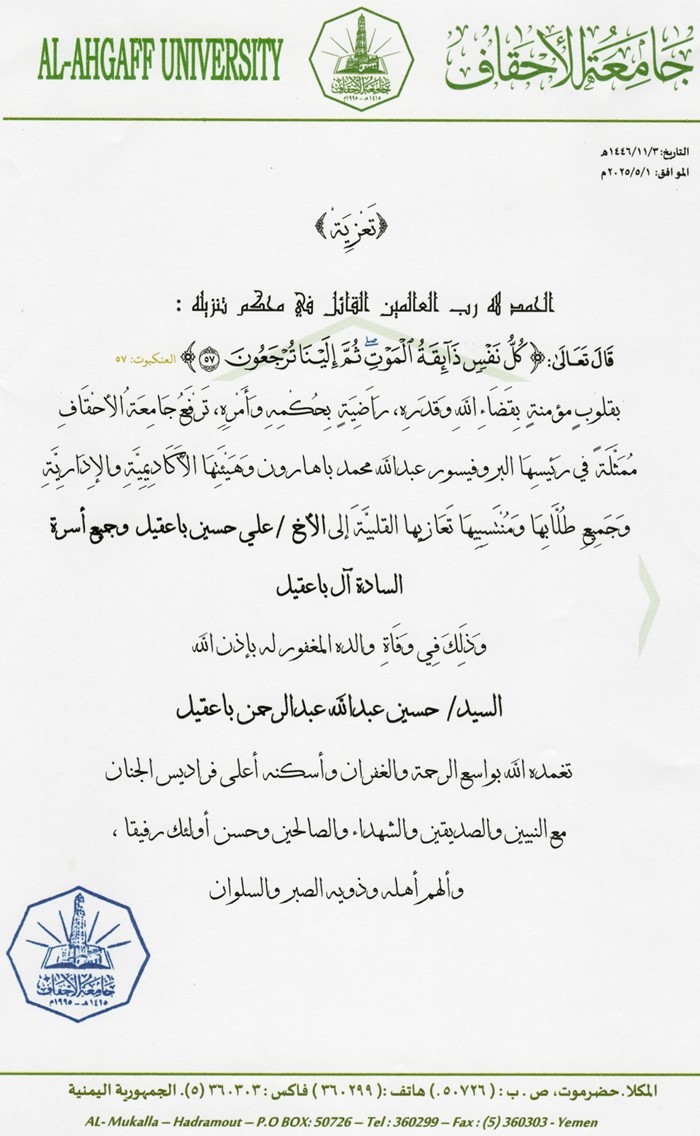 AL-AHGAFF UNIVERSITY
جامعة الأحقاف
جامعة الأحقاف
١٤١٥هـ - ١٩٩٥م
التاريخ: ١٤٤٦/١١/٣هـ
الموافق: ٢٠٢٥/٥/١م
﴿تَعْزِيَة﴾
الحمد لله رب العالمين القائل في محكم تنزيله :
قَالَ تَعَالَىٰ: ﴿ كُلُّ نَفْسٍ ذَآئِقَةُ ٱلْمَوْتِۖ ثُمَّ إِلَيْنَا تُرْجَعُونَ ٥٧ ﴾ العنكبوت: ٥٧
بقلوبٍ مؤمنةٍ بِقضَاءِ اللهِ وَقدَرِه، رَاضَيَةٍ بِحُكْمِهِ وَأَمْرِهِ، تَرفَعُ جَامعَةُ الأحْقَاف
مُمَثَّلَةً في رَئيسِهَا البروفيسور عبدالله محمد باهارون وَهَيْئتِهَا الأكَادِيمِيَّةِ والإِدَاريَّةِ
وَجَمِيعِ طُلَّابِهَا وَمُنْتَسِبِيهَا تَعَازيها القلبيَّةَ إلى الأخ /علي حسين باعقيل وجميع أسرة
السادة آل باعقيل
وَذَلِكَ فِي وَفَاةِ والده المغفور له بإذن الله
السيد/ حسين عبدالله عبدالرحمن باعقيل
تغمده الله بواسع الرحمة والغفران وأسكنه أعلى فراديس الجنان
مع النبيين والصديقين والشهداء والصالحين وحسن أولئك رفيقا ،
وألهم أهله وذويه الصبر والسلوان
جامعة الأحقاف
١٤١٥هـ - ١٩٩٥م
المكلا. حضرموت، ص . ب : ( ٥٠٧٢٦ ) هاتف :( ٣٦٠٢٩٩ ) فاكس : ٣٦٠٣٠٣ (٥). الجمهورية اليمنية
AL- Mukalla – Hadramout – P.O BOX: 50726 – Tel : 360299 – Fax : (5) 360303 - Yemen